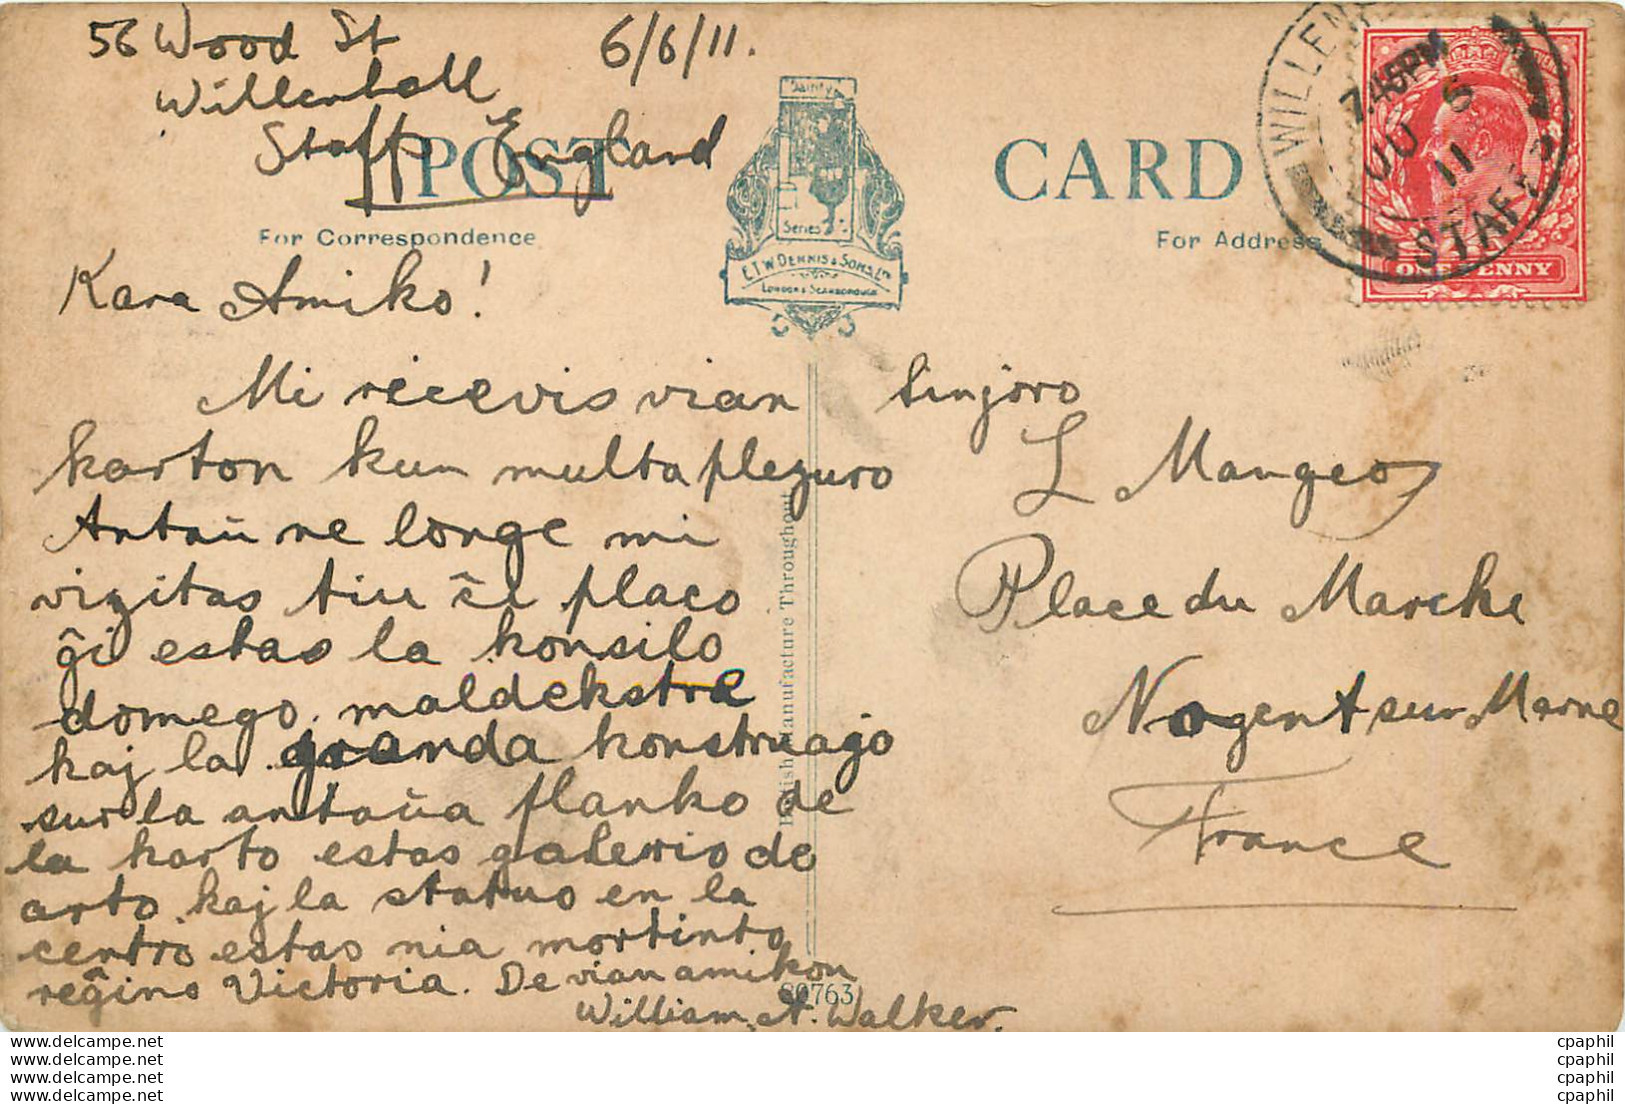 56 Wood St
6/6/11.
Willenhall
Staffs England
POST CARD
For Correspondence
For Address
Dainty
Series
E.T.W. DENNIS & SONS, LTD
LONDON & SCARBOROUGH
WILLEN
7.45PM
JU 6
11
STAFFS
ONE PENNY
Kara Amiko!
Mi ricevis vian
karton kun multa plezuro
Antaŭ ne longe mi
vizitas tiu ĉi placo
ĝi estas la konsilo
domego, maldekstre
kaj la granda konstruaĵo
sur la antaŭa flanko de
la karto estas galerio de
arto, kaj la statuo en la
centro estas nia mortinto
reĝino Victoria. De vian amikon
William A. Walker.
Sinjoro
L Mangeo
Place du Marche
Nogent sur Marne
France
British Manufacture Throughout
60763
www.delcampe.net
www.delcampe.net
www.delcampe.net
www.delcampe.net
cpaphil
cpaphil
cpaphil
cpaphil